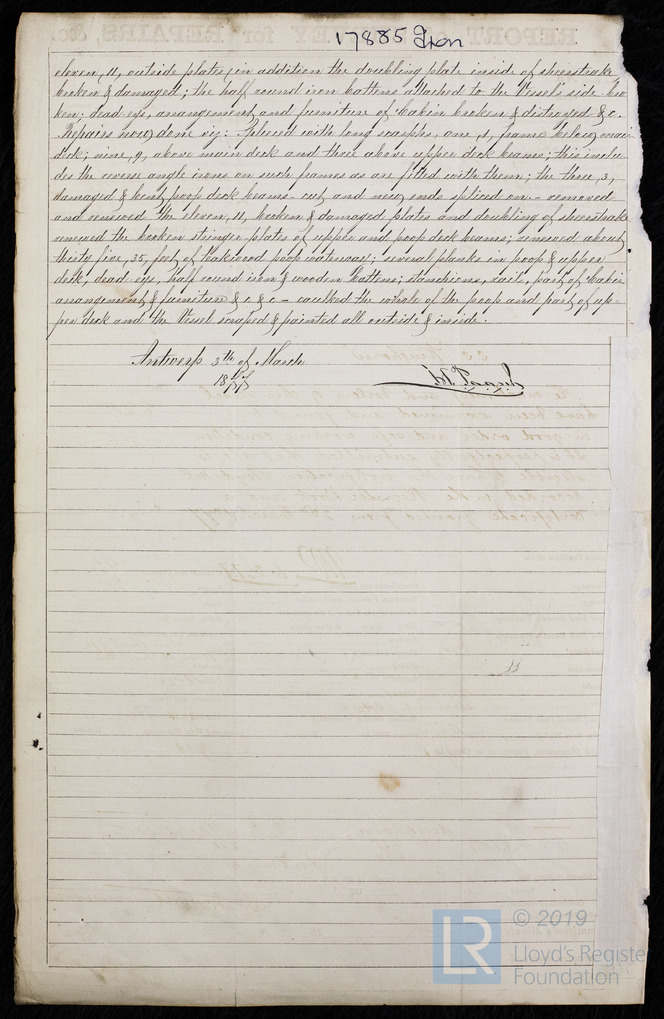 17885 Iron
eleven, 11, outside plates, in addition the doubling plate inside of sheerstrake
broken & damaged; the half round iron battens attached to the Vessels side bro
ken; dead eyes, arrangement and furniture of Cabin broken & distroyed & c.
Repairs now done viz: Spliced with long scarphs, one, 1, frame below main
deck; nine, 9, above main deck and three above upper deck beams; this inclu-
des the reverse angle irons on such frames as are fitted with them; the three, 3,
damaged & bent poop deck beams cut and new ends spliced on - removed
and renewed the eleven, 11, broken & damaged plates and doubling of sheerstrake
renewed the broken stringer plates of upper and poop deck beams; renewed about
thirty five, 35, feet of teakwood poop waterway; several planks in poop & upper
deck, dead eyes, half round iron & wooden Battens; stanchions, rails, part of Cabin
arrangement & furniture & c & c - caulked the whole of the poop and part of up-
per deck and the Vessel scraped & painted all outside & inside.
Antwerp 3th of March
1877
LR
© 2019
Lloyd's Register
Foundation